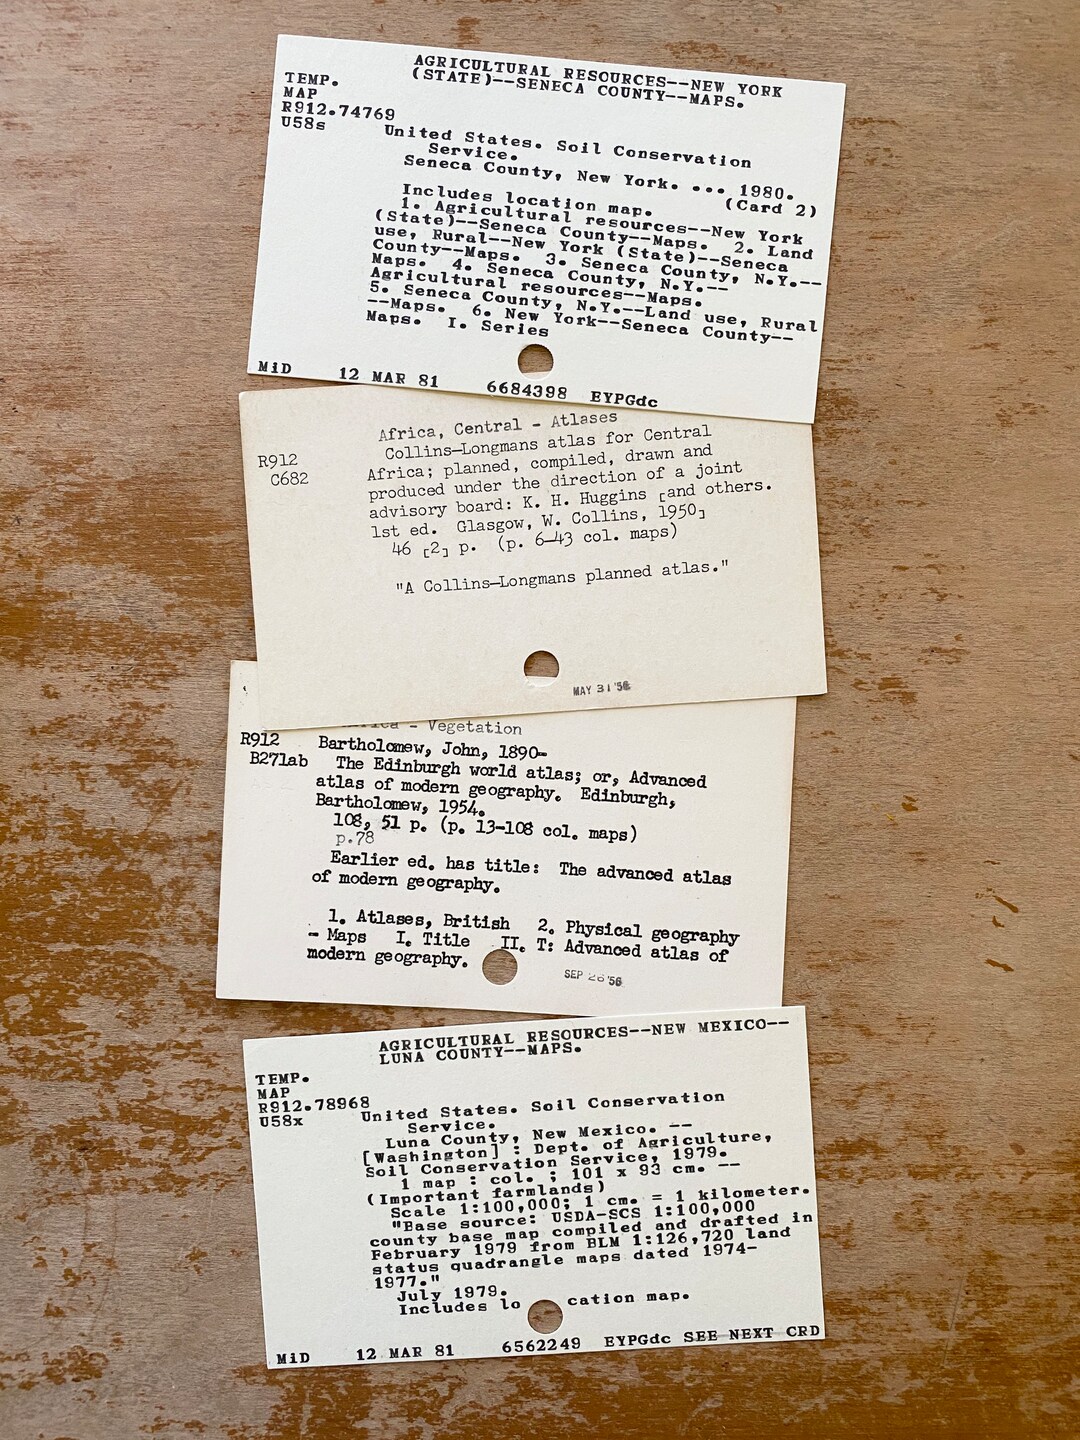 AGRICULTURAL RESOURCES--NEW YORK
(STATE)--SENECA COUNTY--MAPS.
TEMP.
MAP
R912.74769
U58s
United States. Soil Conservation
Service.
Seneca County, New York. ... 1980.
(Card 2)
Includes location map.
1. Agricultural resources--New York
(State)--Seneca County--Maps. 2. Land
use, Rural--New York (State)--Seneca
County--Maps. 3. Seneca County, N.Y.--
Maps. 4. Seneca County, N.Y.--
Agricultural resources--Maps.
5. Seneca County, N.Y.--Land use, Rural
--Maps. 6. New York--Seneca County--
Maps. I. Series
MiD 12 MAR 81 6684398 EYPGdc
Africa, Central - Atlases
R912
C682
Collins-Longmans atlas for Central
Africa; planned, compiled, drawn and
produced under the direction of a joint
advisory board: K. H. Huggins [and others.
1st ed. Glasgow, W. Collins, 1950]
46 [2] p. (p. 6-43 col. maps)
"A Collins-Longmans planned atlas."
MAY 31 '56
- Vegetation
R912
B271ab
Bartholomew, John, 1890-
The Edinburgh world atlas; or, Advanced
atlas of modern geography. Edinburgh,
Bartholomew, 1954.
108, 51 p. (p. 13-108 col. maps)
p.78
Earlier ed. has title: The advanced atlas
of modern geography.
1. Atlases, British 2. Physical geography
- Maps I. Title II. T: Advanced atlas of
modern geography.
SEP 26 '56
AGRICULTURAL RESOURCES--NEW MEXICO--
LUNA COUNTY--MAPS.
TEMP.
MAP
R912.78968
U58x
United States. Soil Conservation
Service.
Luna County, New Mexico. --
[Washington] : Dept. of Agriculture,
Soil Conservation Service, 1979.
1 map : col. ; 101 x 93 cm. --
(Important farmlands)
Scale 1:100,000; 1 cm. = 1 kilometer.
"Base source: USDA-SCS 1:100,000
county base map compiled and drafted in
February 1979 from BLM 1:126,720 land
status quadrangle maps dated 1974-
1977."
July 1979.
Includes lo cation map.
MiD 12 MAR 81 6562249 EYPGdc SEE NEXT CRD